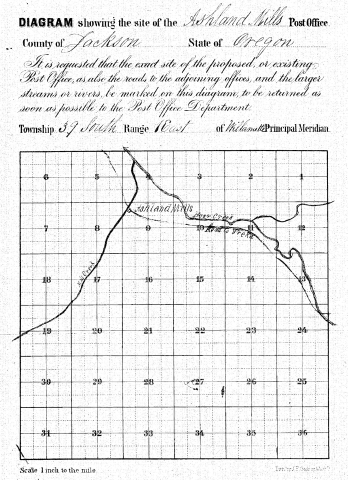 DIAGRAM showing the site of the Ashland Mills Post Office
County of Jackson State of Oregon
It is requested that the exact site of the proposed, or existing
Post Office, as also the roads to the adjoining offices, and the larger
streams or rivers, be marked on this diagram, to be returned as
soon as possible to the Post Office Department.
Township 39 South Range 1 East of Willamette Principal Meridian.
6 5 4 3 2 1
Ashland Mills
8 9 10 11 12
Bear Creek
18 17 16 15 14
Mill Creek
19 20 21 22 23 24
30 29 28 27 26 25
31 32 33 34 35 36
Scale 1 inch to the mile.